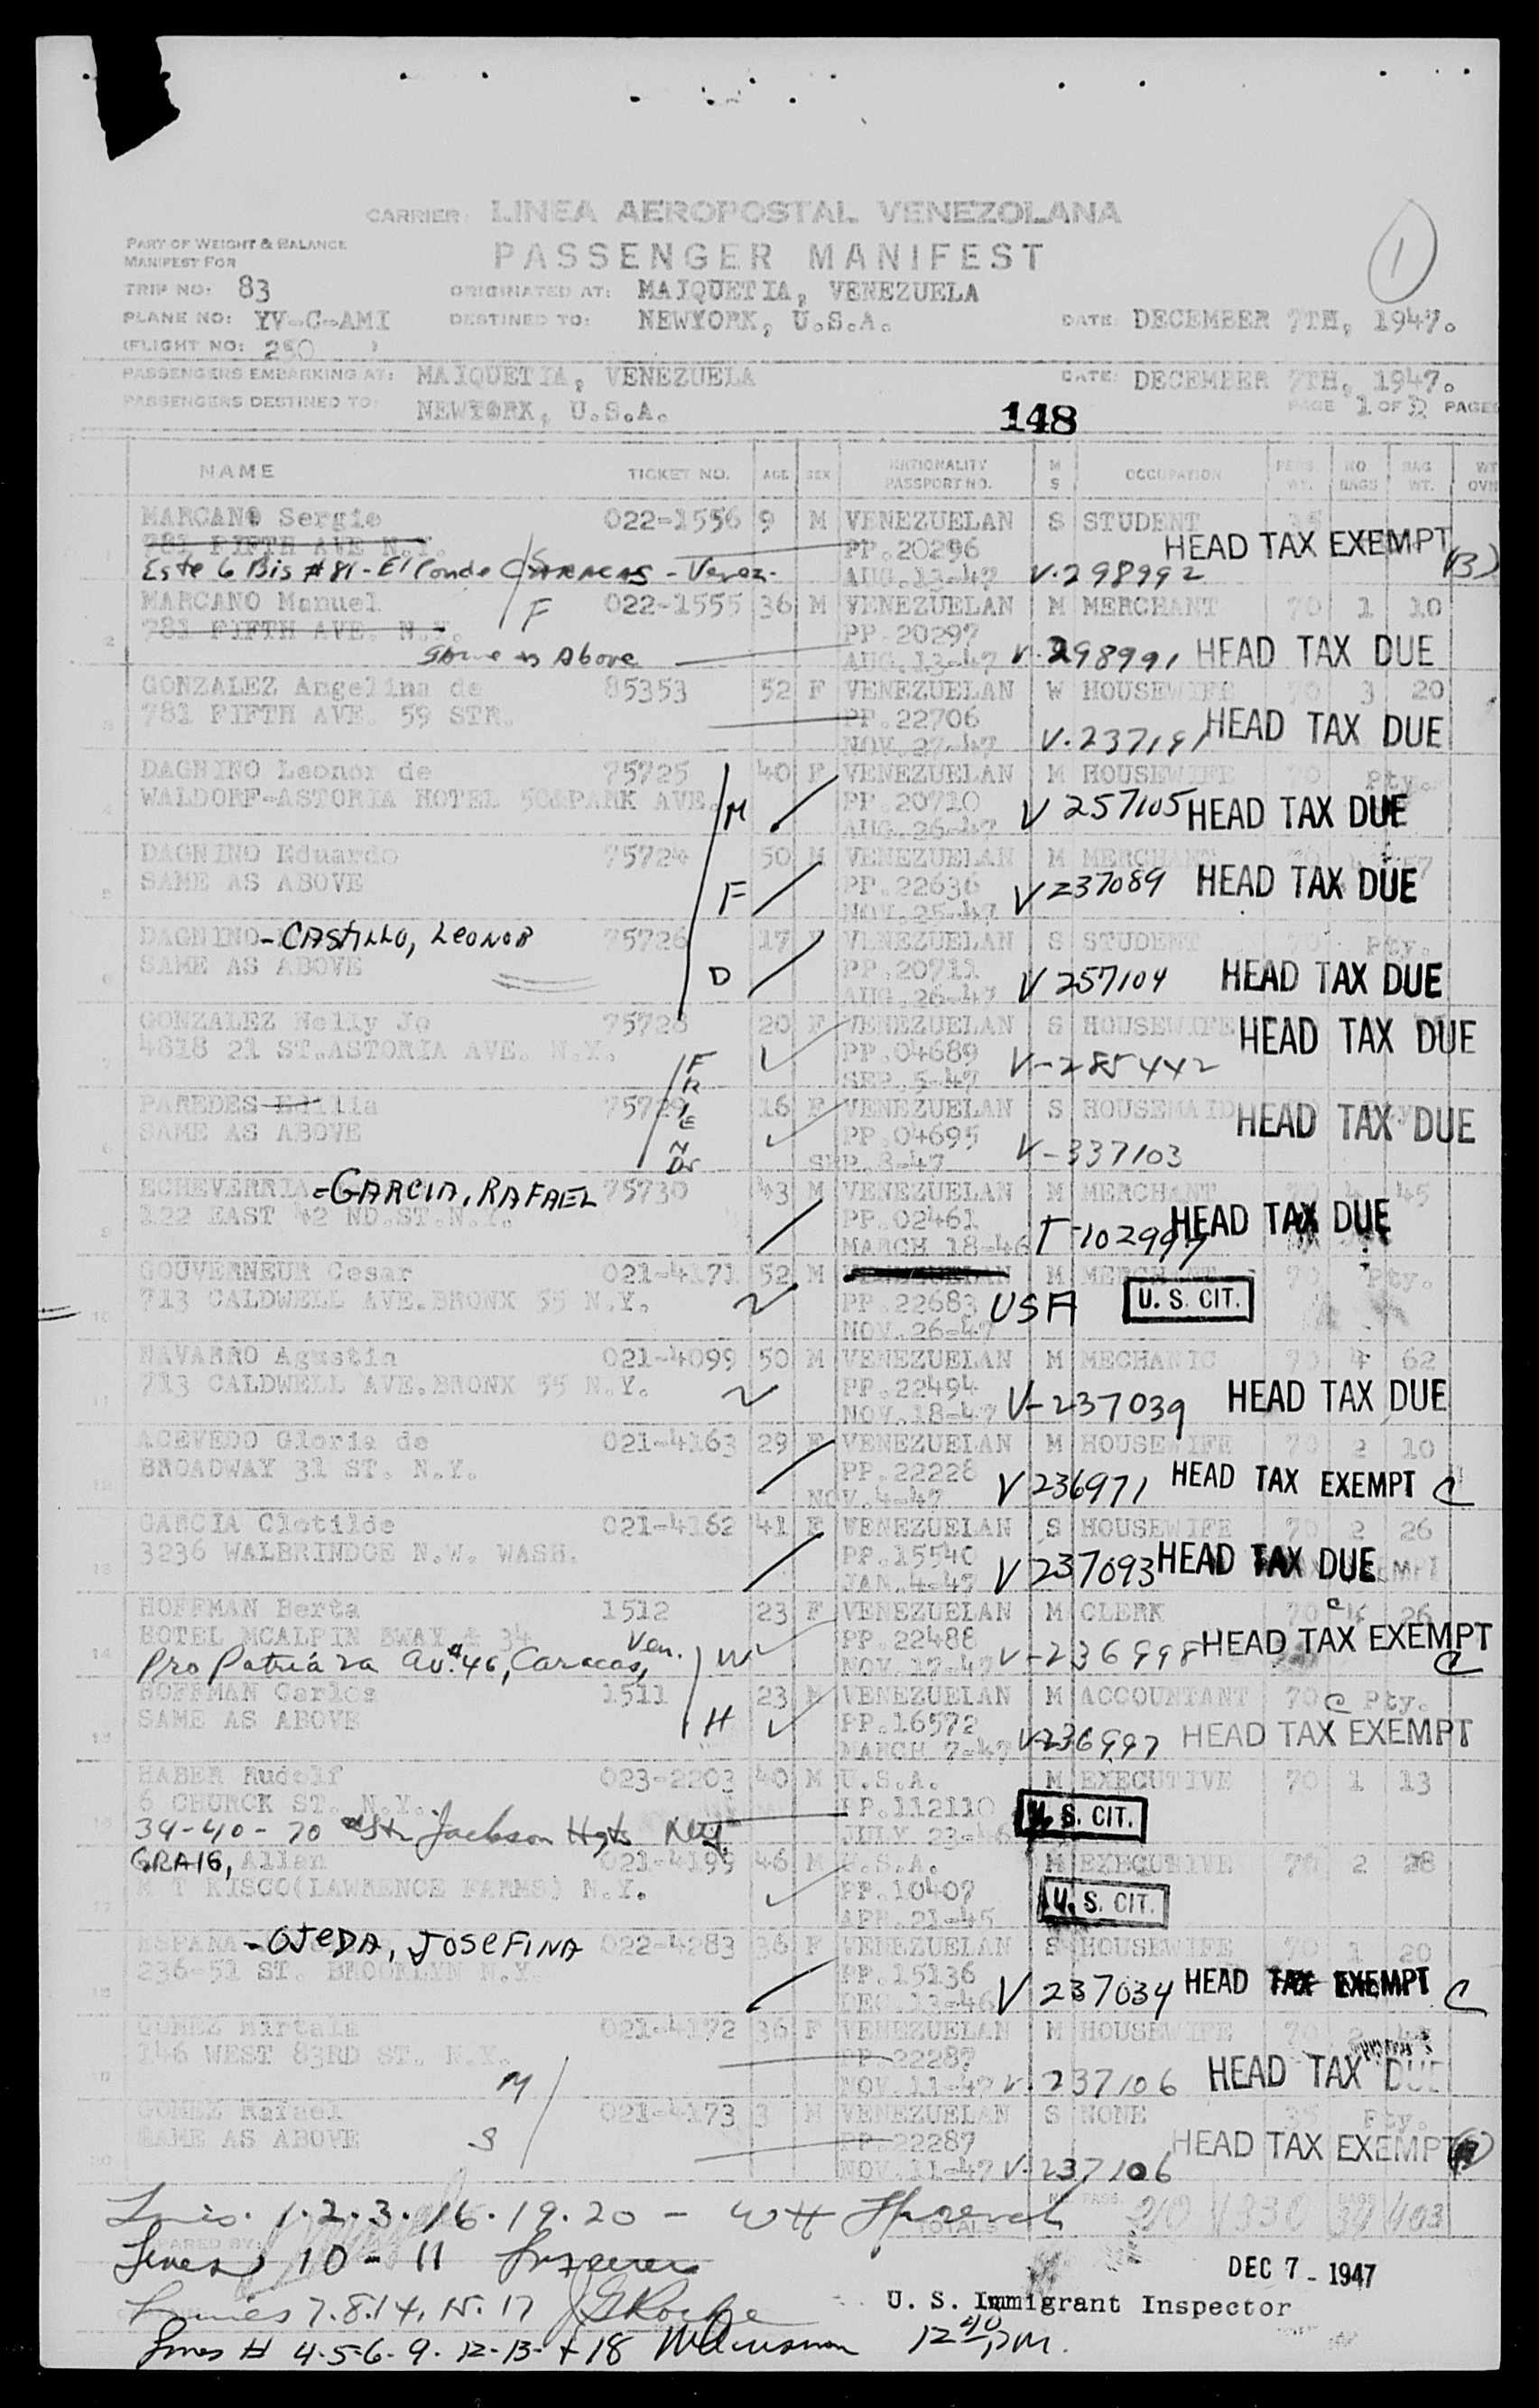 1
CARRIER: LINEA AEROPOSTAL VENEZOLANA
PART OF WEIGHT & BALANCE
MANIFEST FOR
PASSENGER MANIFEST
TRIP NO: 83 ORIGINATED AT: MAIQUETIA, VENEZUELA
PLANE NO: YV-C-AMI DESTINED TO: NEWYORK, U.S.A. DATE: DECEMBER 7TH, 1947.
(FLIGHT NO: 250 )
PASSENGERS EMBARKING AT: MAIQUETIA, VENEZUELA DATE: DECEMBER 7TH, 1947.
PASSENGERS DESTINED TO: NEWYORK, U.S.A. PAGE 1 OF PAGES
148
NAME TICKET NO. AGE SEX NATIONALITY PASSPORT NO. M S OCCUPATION PERS. WT. NO. BAGS BAG WT. WT OVN
MARCANO Sergio 022-1556 9 M VENEZUELAN S STUDENT 35
1 781 FIFTH AVE N.Y. PP.20296 HEAD TAX EXEMPT (B)
Este 6 Bis #81 - El Conde CARACAS - Venez. S AUG.13-47 V.298992
MARCANO Manuel F 022-1555 36 M VENEZUELAN M MERCHANT 70 1 10
2 781 FIFTH AVE. N.Y. PP.20297
Same as Above AUG.13-47 V.298991 HEAD TAX DUE
GONZALEZ Angelina de 85353 52 F VENEZUELAN W HOUSEWIFE 70 3 20
3 781 FIFTH AVE. 59 STR. PP.22706 HEAD TAX DUE
NOV.27-47 V.237191
DAGNINO Leonor de 75725 40 F VENEZUELAN M HOUSEWIFE 70 Pty.
4 WALDORF-ASTORIA HOTEL 50&PARK AVE. M PP.20710 V 257105 HEAD TAX DUE
AUG.26-47
DAGNINO Eduardo 75724 50 M VENEZUELAN M MERCHANT 57
5 SAME AS ABOVE F PP.22636 V 237089 HEAD TAX DUE
NOV.25-47
DAGNINO - CASTILLO, LEONOR 75726 17 VENEZUELAN S STUDENT 70 Pty.
6 SAME AS ABOVE D PP.20711
AUG.26-47 V 257104 HEAD TAX DUE
GONZALEZ Nelly Jo 75728 20 F VENEZUELAN S HOUSEWIFE HEAD TAX DUE
7 4818 21 ST.ASTORIA AVE. N.Y. PP.04689
SEP.5-47 V-285442
FRIENDS
PAREDES Edilia 75729 16 F VENEZUELAN S HOUSEMAID HEAD TAX DUE
8 SAME AS ABOVE PP.04695
SEP.8-47 V-337103
ECHEVERRIA - GARCIA, RAFAEL 75730 43 M VENEZUELAN M MERCHANT 45
9 122 EAST 42 ND.ST.N.Y. PP.02461 HEAD TAX DUE
MARCH 18-46 T-102997
GOUVERNEUR Cesar 021-4171 52 M VENEZUELAN M MERCHANT 70 Pty.
10 713 CALDWELL AVE.BRONX 55 N.Y. PP.22683 USA U. S. CIT.
NOV.26-47
NAVARRO Agustin 021-4099 50 M VENEZUELAN M MECHANIC 70 4 62
11 713 CALDWELL AVE.BRONX 55 N.Y. PP.22494
NOV.18-47 V-237039 HEAD TAX DUE
ACEVEDO Gloria de 021-4163 29 F VENEZUELAN M HOUSEWIFE 70 2 10
12 BROADWAY 31 ST. N.Y. PP.22228
NOV.4-47 V 236971 HEAD TAX EXEMPT C
GARCIA Clotilde 021-4162 41 F VENEZUELAN S HOUSEWIFE 70 2 26
13 3236 WALBRINDGE N.W. WASH. PP.15540
JAN.4-47 V 237093 HEAD TAX DUE
HOFFMAN Berta 1512 23 F VENEZUELAN M CLERK 70 26
14 HOTEL MCALPIN BWAY & 34 PP.22488
Pro Patria 2a Av. #46, Caracas, Ven. W NOV.17-47 V-236998 HEAD TAX EXEMPT C
HOFFMAN Carlos 1511 23 M VENEZUELAN M ACCOUNTANT 70 C Pty.
15 SAME AS ABOVE H PP.16572
MARCH 7-47 V-236997 HEAD TAX EXEMPT
HABER Rudolf 023-2203 40 M U.S.A. M EXECUTIVE 70 1 13
16 6 CHURCK ST. N.Y. PP.112110
34-40-70 Str Jackson Hgts N.Y. JULY 23-46 U. S. CIT.
GRAIG, Allan 021-4199 46 M U.S.A. M EXECUTIVE 70 2 28
17 M T KISCO(LAWRENCE FARMS) N.Y. PP.10407
APR.21-45 U. S. CIT.
ESPANA - OJEDA, JOSEFINA 022-4283 36 F VENEZUELAN S HOUSEWIFE 70 1 20
18 236-51 ST. BROOKLYN N.Y. PP.15136
DEC.13-46 V 237034 HEAD TAX EXEMPT C
GOMEZ Mirtala 021-4172 36 F VENEZUELAN M HOUSEWIFE 70 2
19 146 WEST 83RD ST. N.Y. PP.22287
M NOV.11-47 V.237106 HEAD TAX DUE
GOMEZ Rafael 021-4173 3 M VENEZUELAN S NONE 35 Pty.
20 SAME AS ABOVE S PP.22287
NOV.11-47 V-237106 HEAD TAX EXEMPT
1.2.3.16.19.20 - WH
NO. PASS. 20 1330 BAGS 403
PREPARED BY: TOTALS
Lines 10 - 11
DEC 7 - 1947
U. S. Immigrant Inspector
Lines 7.8.14.15.17
Lines # 4-5-6-9-12-13-+18 12 40 PM.